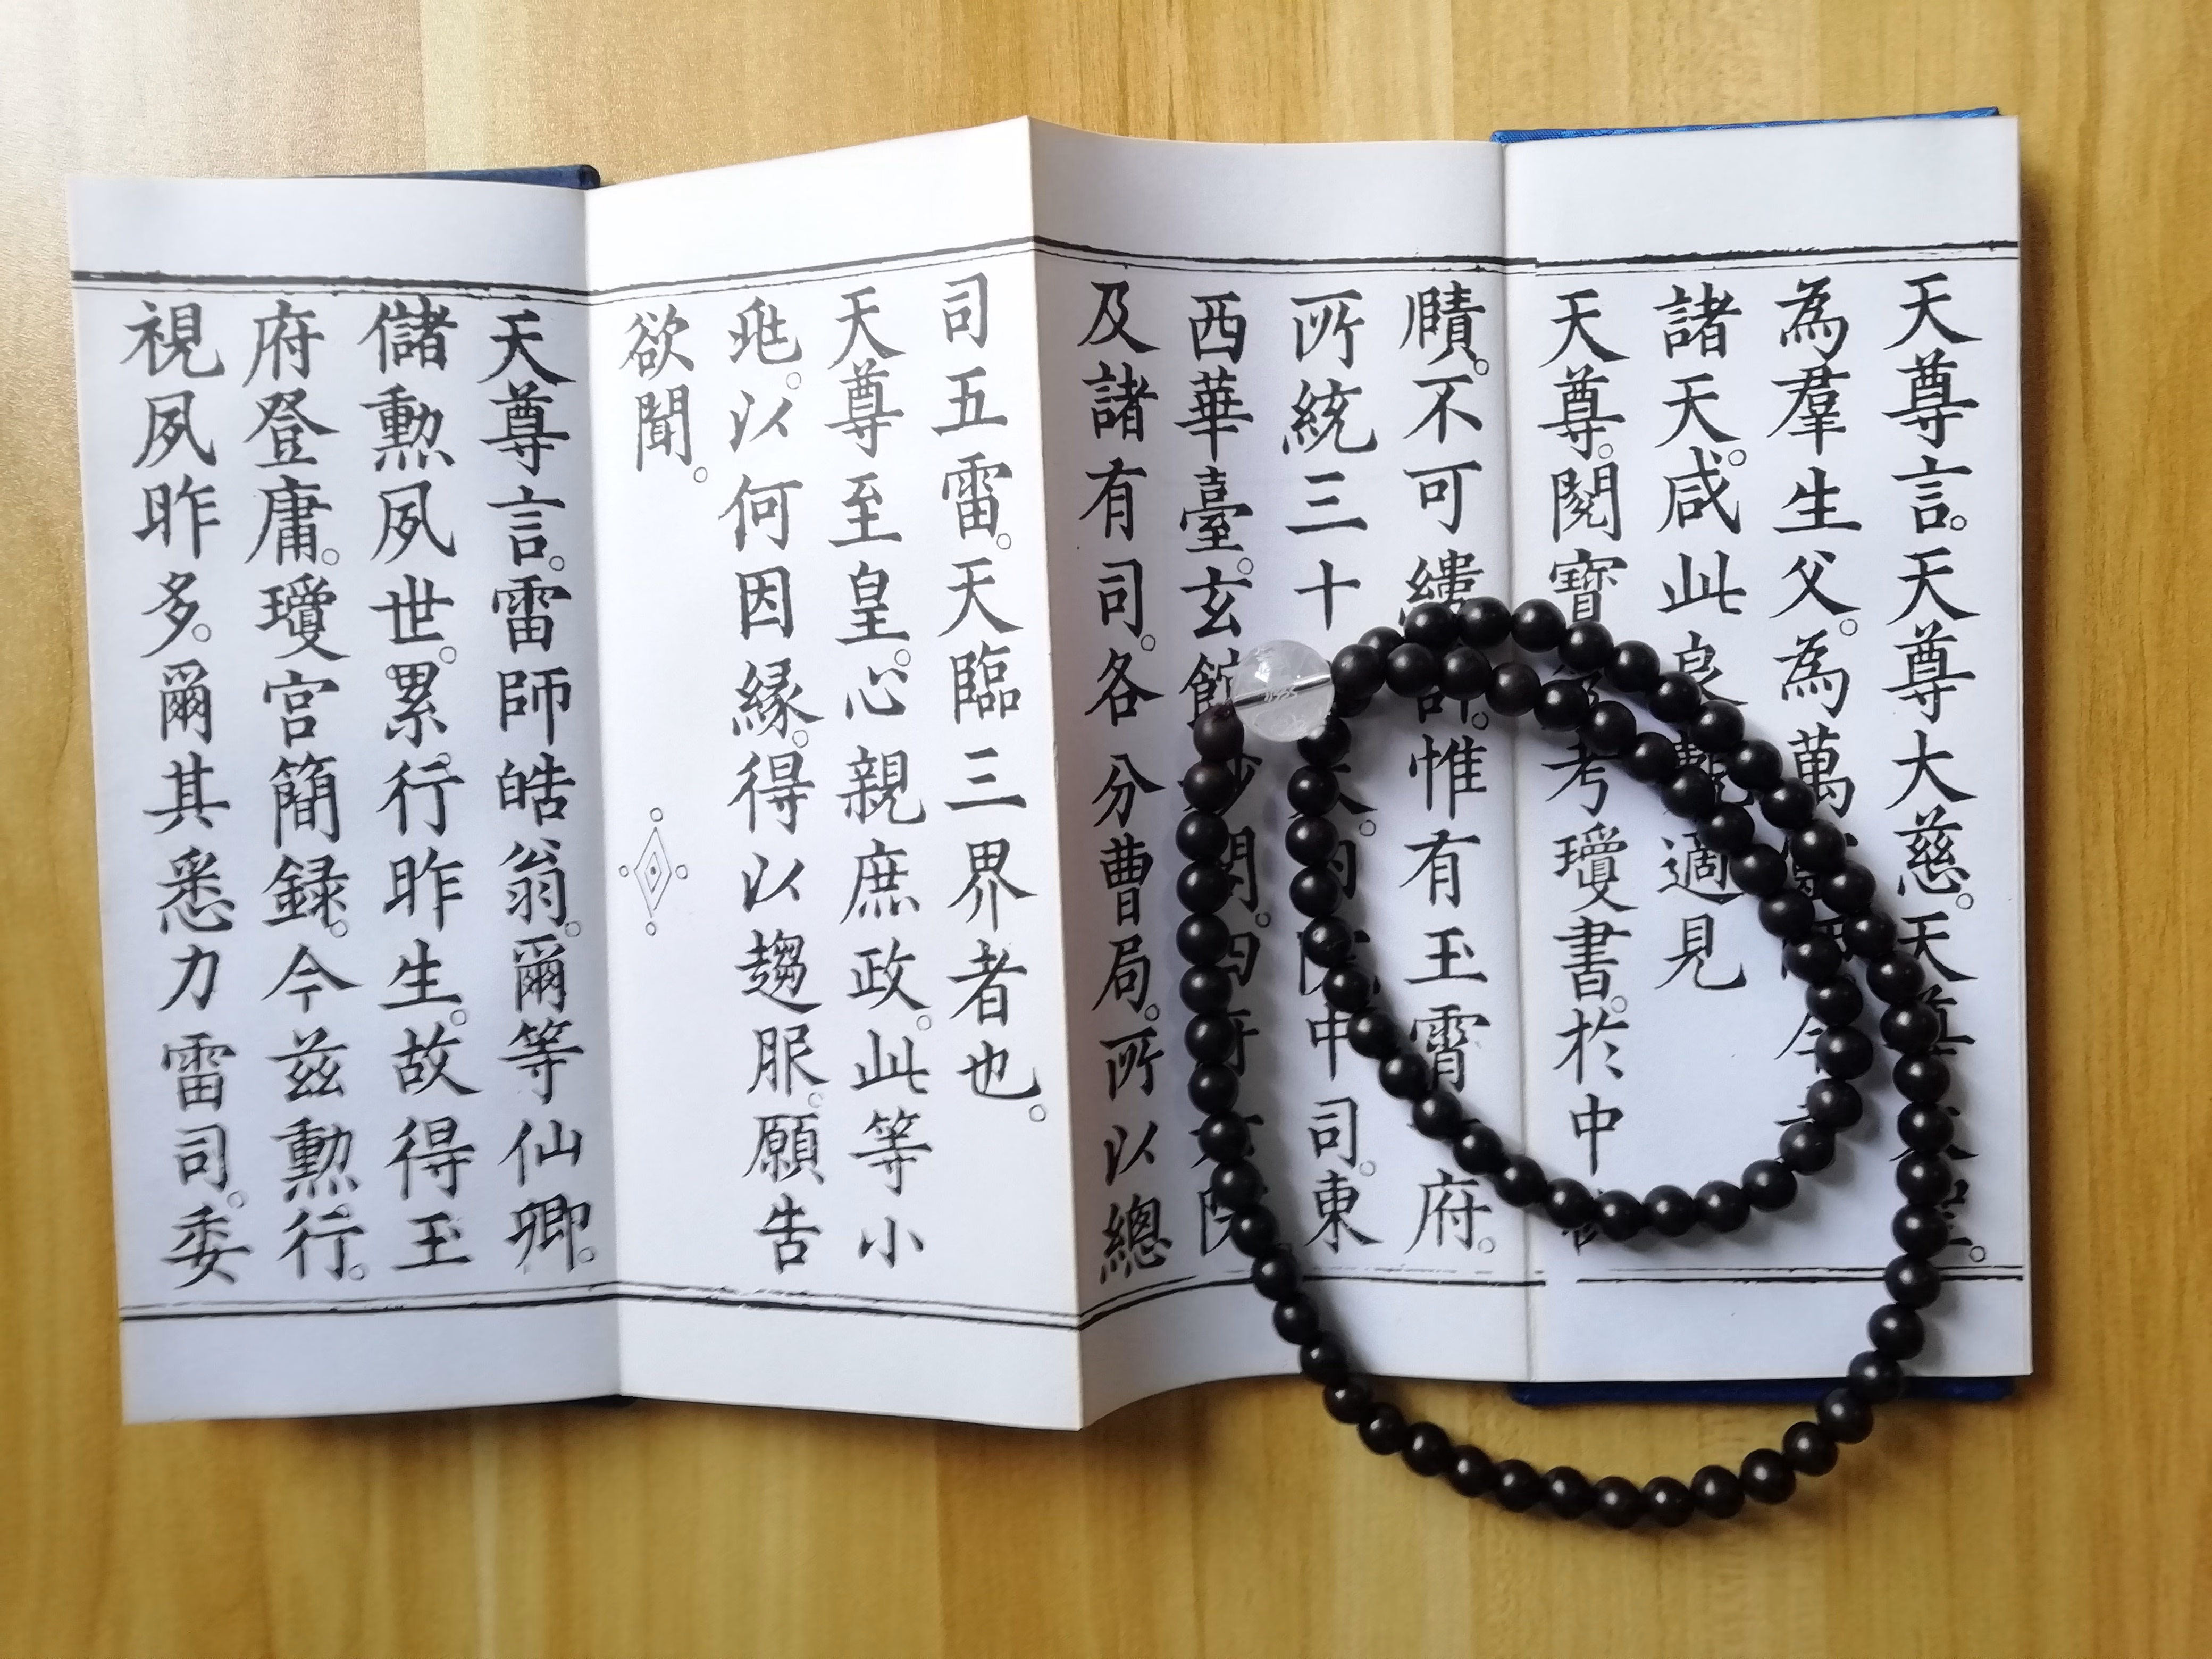 天尊言。天尊大慈。天尊
為羣生父。為萬
諸天。咸此良覩。適見
天尊。閱寶 考瓊書。於中
賾。不可縷 。惟有玉霄 府。
所統三十 中司。東
西華臺。玄館妙閣。四府 院
及諸有司。各分曹局。所以總
司五雷。天臨三界者也。
天尊至皇。心親庶政。此等小
兆。以何因緣。得以趨服。願告
欲聞。
天尊言。雷師皓翁。爾等仙卿。
儲勲夙世。累行昨生。故得玉
府登庸。瓊宮簡録。今茲勲行。
視夙昨多。爾其悉力雷司。委